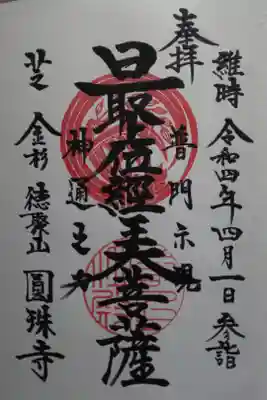 奉拝
維時 令和四年四月一日 参詣
普門示現
最上位経王大菩薩
神通之力
芝 金杉 徳聚山 圓珠寺